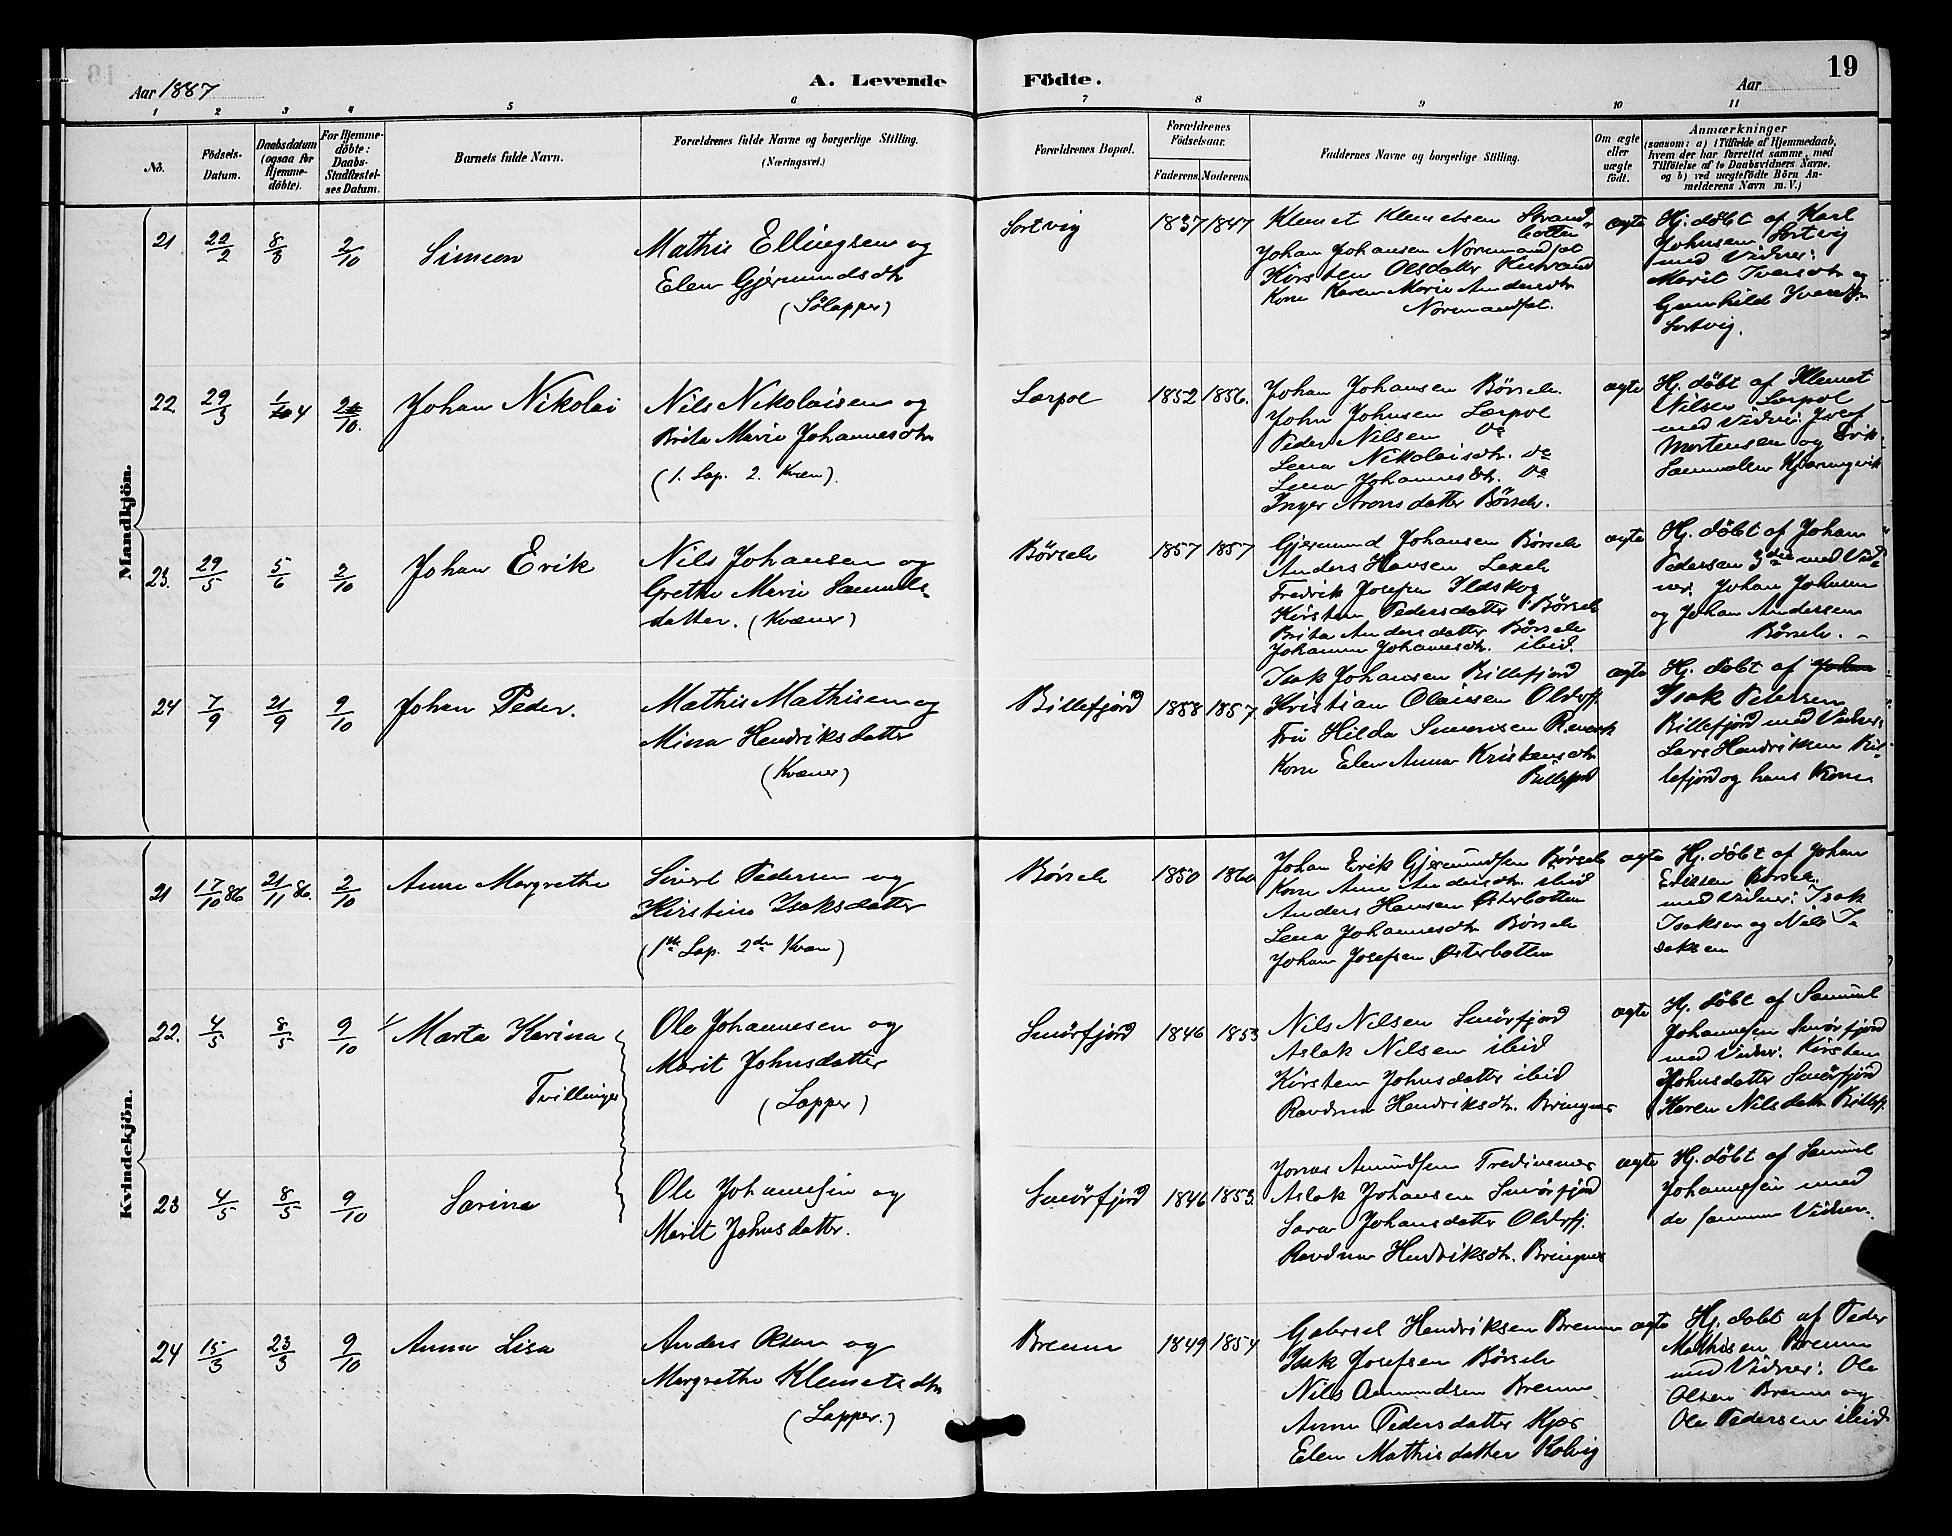 Aar 1887
A. Levende
Födte.
Aar
19
1 2 3 4 5 6 7 8 9 10 11
No.
Födsels-
Datum.
Daabsdatum
(ogsaa for
Hjemme-
döbte).
For Hjemme-
döbte:
Daabs-
Stadfæstel-
ses Datum.
Barnets fulde Navn.
Forældrenes fulde Navne og borgerlige Stilling.
(Næringsvei.)
Forældrenes Bopæl.
Forældrenes
Födselsaar.
Faderens. Moderens.
Faddernes Navne og borgerlige Stilling.
Om ægte
eller
uægte
födt.
Anmærkninger
(saasom: a) i Tilfælde af Hjemmedaab,
hvem der har forrettet samme, med
Tilföielse af to Daabsvidners Navne,
og b) ved uægtefödte Börn An-
melderens Navn m. V.)
Mandkjön.
21. 22/2 8/3 2/10 Simeon
Mathis Ellingsen og
Elen Gjermundsdtr
(Sölapper)
Sortvig 1837 1847
Klemet Klemetsen Strand-
botten
Johan Johansen Normandset
Kirsten Olsdatter
Kone Karen Marie Andersdtr
Normandset.
ægte
Hj. döbt af Karl
Johnsen Sortvig
med Vidner:
Marit Iversdtr og
Gunhild Iversdtr
Sortvig.
22 29/3 1/4 2/10. Johan Nikolai
Nils Nikolaisen og
Brita Marie Johannesdtr
(1. Lap. 2. Kvæn).
Lærpol 1852 1856.
Johan Johansen Börselv.
John Johnsen Lærpol
Peder Nilsen Do
Lena Nikolaisdtr. Do
Lena Johannesdtr. Do
Inger Aronsdatter Börselv.
ægte
Hj. döbt af Klemet
Nilsen Lærpol
med Vidner: Josef
Mortensen og Erik
Samuelsen Kjæringvik
23. 29/5 5/6 2/10 Johan Erik
Nils Johansen og
Grethe Marie Samuels-
datter. (Kvæner)
Börselv 1857 1857
Gjermund Johansen Börselv
Anders Hansen Laxelv
Fredrik Josefsen Ildskog
Kirsten Pedersdatter Börselv
Brita Andersdatter Börselv
Johanne Johannesdtr. ibid.
ægte
Hj. döbt af Johan
Pedersen 3die med Vid-
ner: Johan Johnsen
og Johan Andersen
Börselv.
24 7/9 21/9 9/10 Johan Peder.
Mathis Mathisen og
Mina Hendriksdatter
(Kvæner)
Billefjord 1858 1857
Isak Johansen Billefjord
Kristian Olaisen Olderfj.
Fru Hilda Simonsen Renvik
Kone Elen Anna Kristensdtr
Billefjord
ægte
Hj. döbt af Johan
Isak Petersen
Billefjord med Vidner:
Lars Hendriksen Bil-
lefjord og hans Kone
Kvindekjön.
21 17/10 86 21/11 86. 2/10 Anne Margrethe
Sivert Pedersen og
Kirstine Isaksdatter
(1ste Lap. 2den Kvæn)
Börselv 1850 1860
Johan Erik Gjermundsen Börselv
Kone Anne Andersdtr. ibid
Anders Hansen Østerbotten
Lena Johannesdtr Börselv
Johan Josefsen Østerbotten
ægte
Hj. döbt af Johan
Eriksen Börselv.
med Vidner: Isak
Isaksen og Nils I-
saksen
22. 4/5 8/5 9/10 Marta Karina
Tvillinger
Ole Johannesen og
Marit Johnsdatter
(Lapper)
Smörfjord 1846 1853
Nils Nilsen Smörfjord
Aslak Nilsen ibid
Kirsten Johnsdatter ibid
Ravdna Hendriksdtr. Bringnes
ægte
Hj. döbt af Samuel
Johannesen Smörfjord
med Vidner: Kirsten
Johnsdatter Smörfjord
Karen Nilsdatr Billefj.
23 4/5 8/5 9/10 Sarina
Ole Johannesen og
Marit Johnsdatter.
Smörfjord 1846 1853.
Jonas Amundsen Tredivenes
Aslak Johansen Smörfjord
Sara Johansdatter Olderfj.
Ravdna Hendriksdtr. Bringnes
ægte
Hj. döbt af Samuel
Johannesen med
de samme Vidner.
24 15/3 23/3 9/10 Anna Lisa
Anders Olsen og
Margrethe Klemetsdtr
(Lapper.)
Brenne 1849 1854
Gabriel Hendriksen Brenne
Isak Josefsen Börselv
Nils Amundsen Brenne
Anne Pedersdatter Kjæs
Elen Mathisdatter Kolvig
ægte
Hj. döbt af Peder
Mathisen Brenne
med Vidner: Ole
Olsen Brenne og
Ole Pedersen ibid